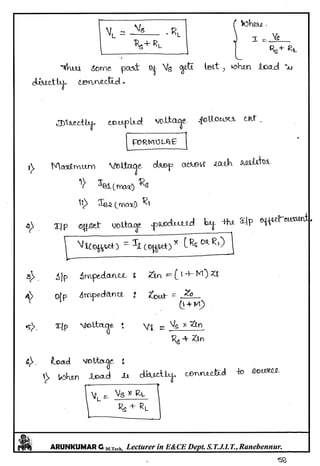 V_L = V_S / (R_S + R_L) . R_L
Where .
I = V_S / (R_S + R_L)
Thus some part of V_S gets lost, when load is
directly connected.
Directly coupled voltage follower ckt.
FORMULAE
1) Maximum Voltage drop across each resistor
i) I_B1(max) R_S
ii) I_B2(max) R_1
2) I/p offset voltage produced by the I/p offset current,
V_i(offset) = I_i(offset) x (R_S OR R_1)
3) I/p Impedance : Zin = (1+M) Zi
4) O/p Impedance : Zout = Zo / (1+M)
5) I/p Voltage : Vi = V_S x Zin / (R_S + Zin)
6) Load Voltage :
i) When load is directly connected to source
V_L = V_S x R_L / (R_S + R_L)
ARUNKUMAR G M.Tech, Lecturer in E&CE Dept. S.T.J.I.T., Ranebennur.
58